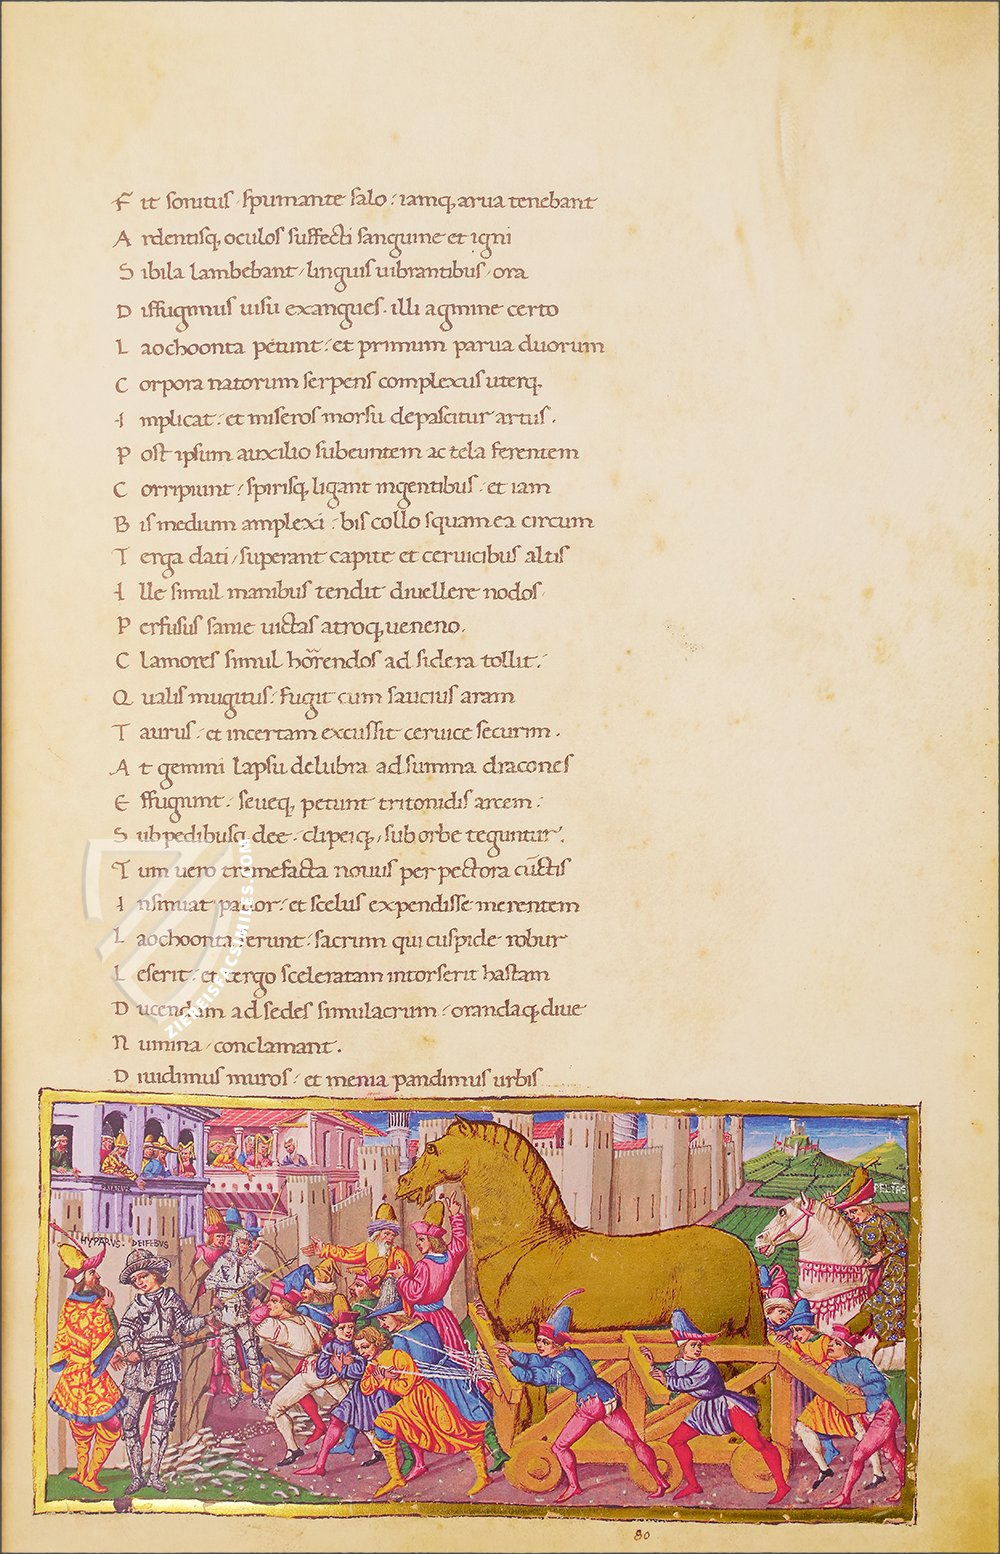 F it sonitus spumante salo: iamq, arua tenebant
A rdentisq, oculos suffecti sanguine et igni
S ibila lambebant linguis uibrantibus ora
D iffugimus uisu exangues. illi agmine certo
L aochoonta petunt: et primum parua duorum
C orpora natorum serpens complexus uterq,
I mplicat: et miseros morsu depascitur artus.
P ost ipsum auxilio subeuntem ac tela ferentem
C orripiunt: spirisq, ligant ingentibus: et iam
B is medium amplexi: bis collo squamea circum
T erga dati / superant capite et ceruicibus altis
I lle simul manibus tendit diuellere nodos
P erfusus sanie uictas atroq, ueneno.
C lamores simul horrendos ad sidera tollit:
Q ualis mugitus: fugit cum saucius aram
T aurus: et incertam excussit ceruice securim.
A t gemini lapsu delubra ad summa dracones
E ffugiunt: seueq, petunt tritonidis arcem:
S ub pedibusq, dee: clipeiq, sub orbe teguntur.
T um uero tremefacta nouus per pectora cūctis
I nsinuat pauor: et scelus expendisse merentem
L aochoonta ferunt: sacrum qui cuspide robur
L eserit: et tergo sceleratam intorserit hastam
D ucendum ad sedes simulacrum: orandaq, diue
N umina conclamant.
D iuidimus muros: et menia pandimus urbis
PRIAMUS
HYPARUS. DEIFEBVS
PELIAS
80
ZIEREISFACSIMILES.COM